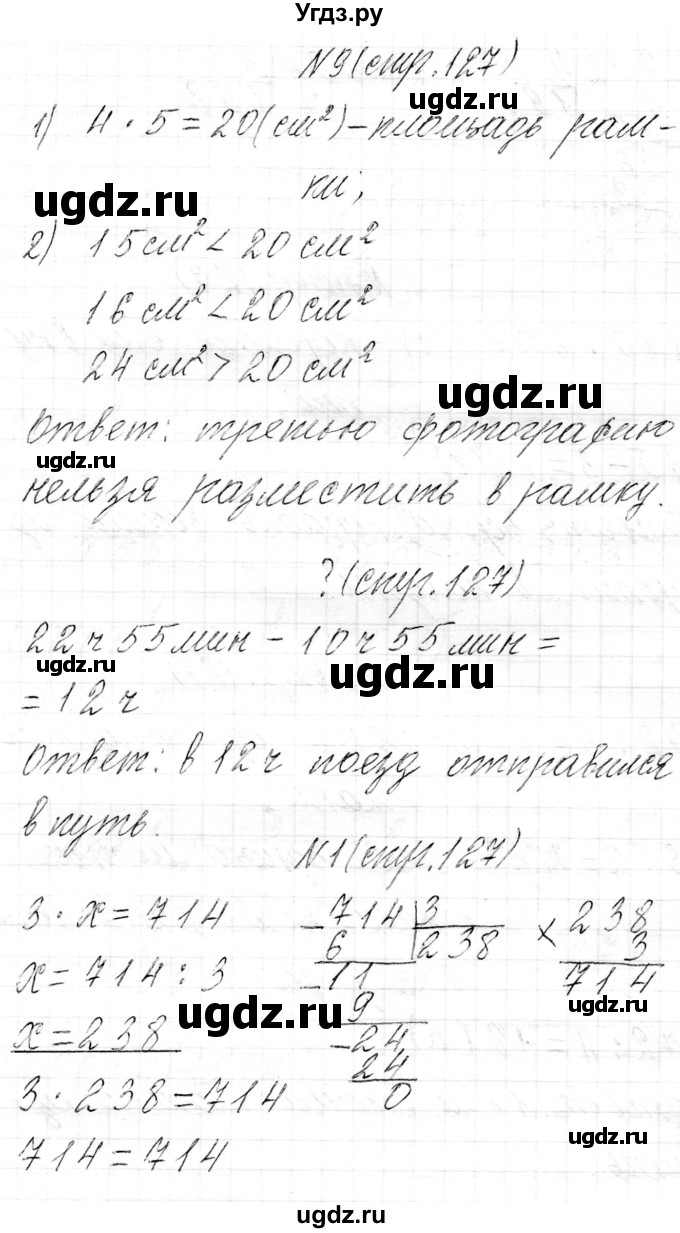 Угдз.ру
№9(стр.127)
ugdz.ru
1) 4 · 5 = 20(см²) – площадь рам-
ки;
ugdz.ru
2) 15 см² < 20 см²
16 см² < 20 см²
24 см² > 20 см²
ugdz.ru
Ответ: третью фотографию
ugdz.ru
нельзя разместить в рамку.
?(стр.127)
22 ч 55 мин – 10 ч 55 мин =
ugdz.ru ugdz.ru
= 12 ч
Ответ: в 12 ч поезд отправился
в путь.
№1(стр.127)
3 · x = 714 – 714 | 3 × 238
6 238 3
x = 714 : 3 – 11 714
ugdz.ru ugdz.ru
x = 238 9
– 24
24
3 · 238 = 714 0
ugdz.ru
714 = 714
ugdz.ru